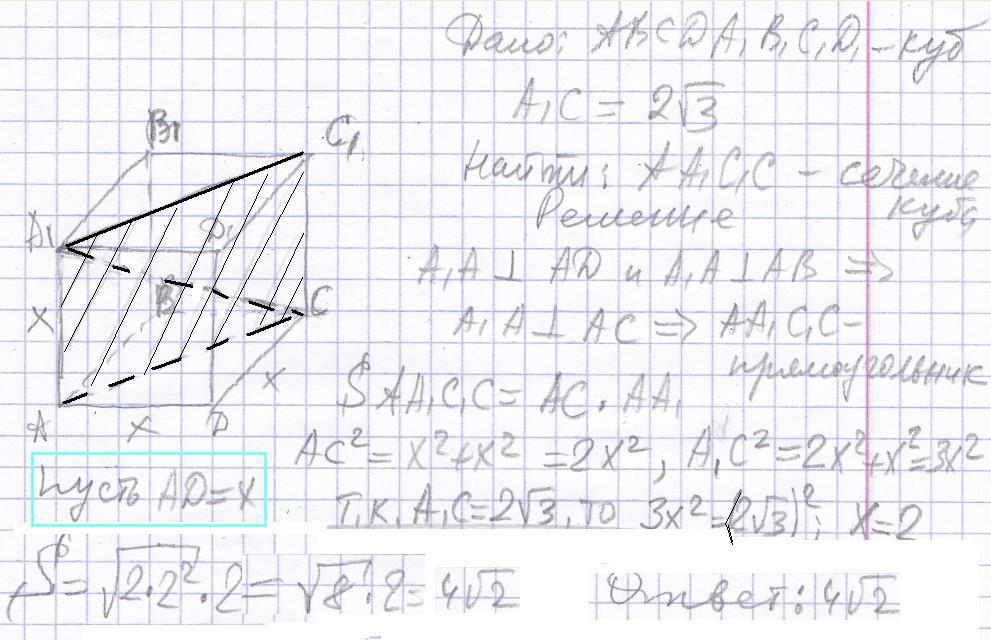 Дано: ABCDA₁B₁C₁D₁ – куб
A₁C = 2√3
Найти: AA₁C₁C – сечение
куба
Решение
A₁A ⊥ AD и A₁A ⊥ AB ⇒
A₁A ⊥ AC ⇒ AA₁C₁C –
прямоугольник
S AA₁C₁C = AC · AA₁
AC² = x² + x² = 2x², A₁C² = 2x² + x² = 3x²
т.к. A₁C = 2√3, то 3x² = (2√3)²; x = 2
B₁
C₁
A₁
D₁
B
C
x
x
A
x
D
Пусть AD = x
S = √2·2² · 2 = √8 · 2 = 4√2
Ответ: 4√2